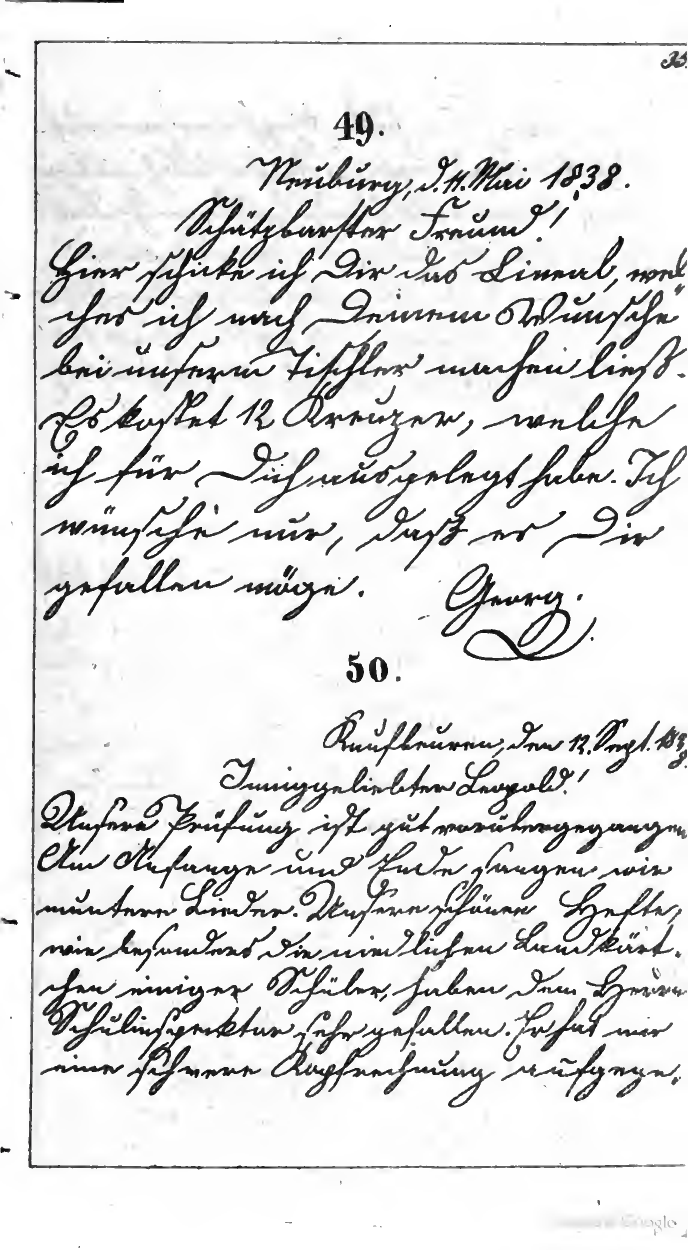 35.
49.
Neuburg, d. 11. Mai 1838.
Schätzbarster Freund!
Hier schicke ich Dir das Lineal, wel-
ches ich nach Deinem Wunsche
bei unserm Tischler machen ließ.
Es kostet 12 Kreuzer, welche
ich für Dich ausgelegt habe. Ich
wünsche nur, daß es Dir
gefallen möge. Georg.
50.
Kaufbeuren, den 12. Sept. 1838.
Inniggeliebter Leopold!
Unsere Prüfung ist gut vorübergegangen
Am Anfange und Ende sangen wir
muntere Lieder. Unsere schönen Hefte,
wie besonders die niedlichen Landkärt-
chen einiger Schüler, haben dem Herrn
Schulinspektor sehr gefallen. Er hat mir
eine schwere Kopfrechnung aufgege-
Google